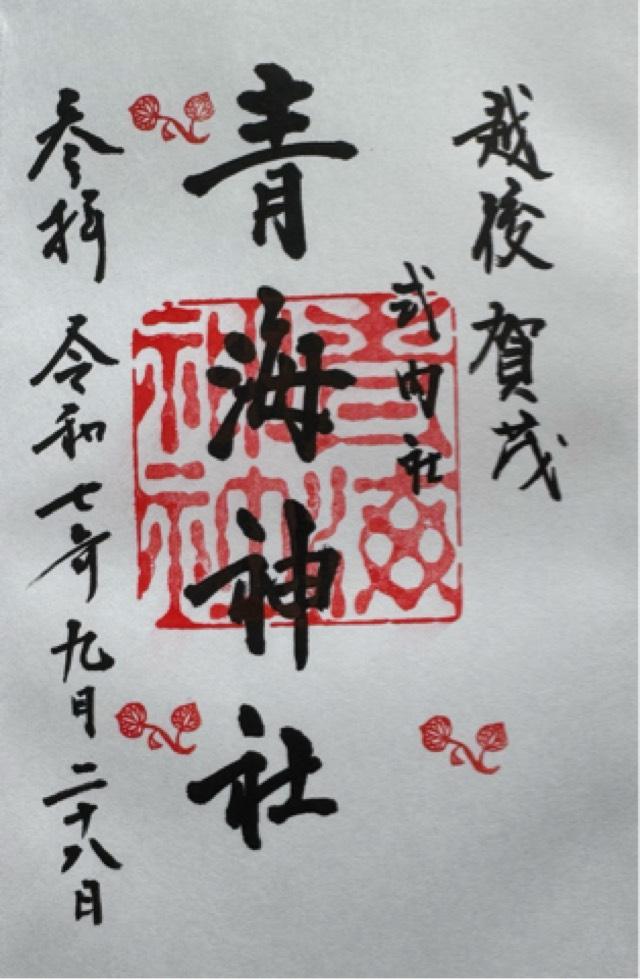 越後賀茂
式内社
青海神社
参拝 令和七年九月二十八日
青海神社